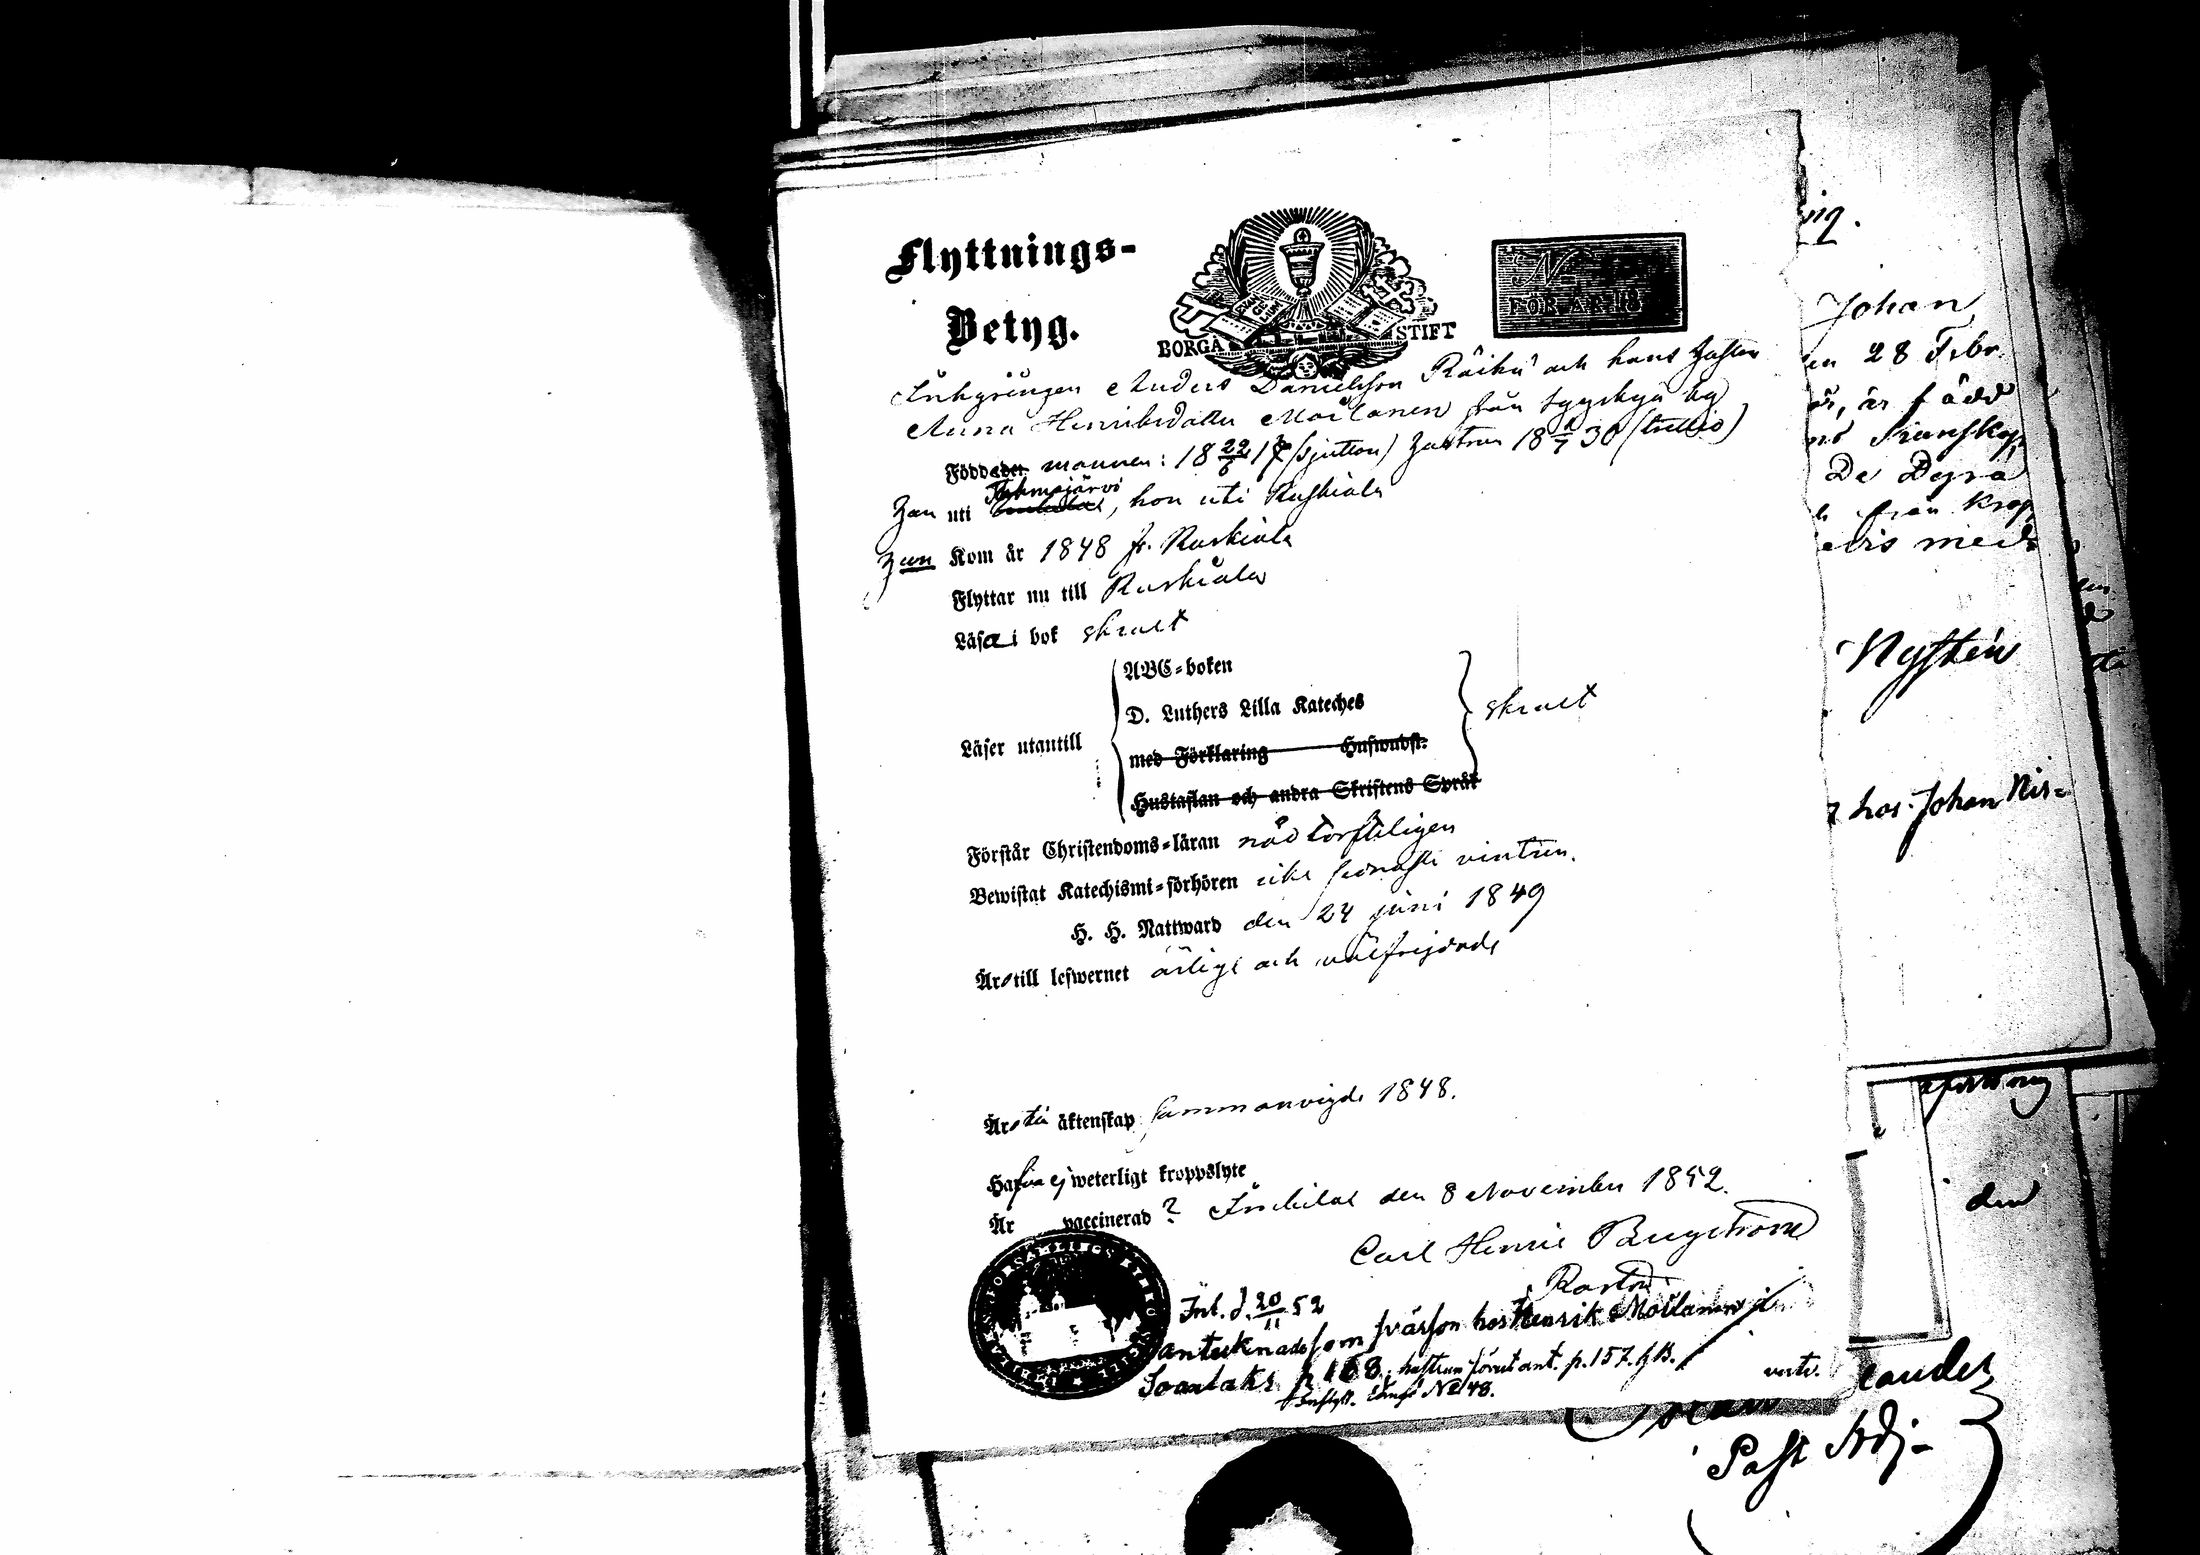 Flyttnings-
Betyg.
BORGÅ STIFT
N
FÖR ÅR 18
Inhysingen Anders Danielsson Räikü och hans hustru
Anna Henriksdotter Moilanen från Syyskyä by
Född mannen: 18 22/6 17 (sjutton) hustrun 18 /7 30 (trettio)
han uti Tohmajärvi, hon uti Ruskiala
hon Kom år 1848 fr. Ruskiala
Flyttar nu till Ruskiala
Läsa i bok skralt
ABC-boken
D. Luthers Lilla Kateches
skralt
Läser utantill
med Förklaring
Hustaflan och andra Skriftens Språk
Förstår Christendoms-läran nödtorfteligen
Bewistat Katechismi-förhören icke sednaste vintren.
H. H. Nattward den 24 juni 1849
Äro till lefwernet ärlige och välfrejdade
Äro äktenskap sammanvigde 1848.
Hafva ej weterligt kroppslyte
Är vaccinerad ? Impilaks den 8 November 1852.
Carl Henric Bergström
Pastor
Inl. d. 20/11 52
antecknads som svärson hos Henrik Moilanen i
Soanlaks p. 168, hustrun förut ant. p. 157. h.B.
Inflytt. Längd No 48.
verte.
Johan
28 Febr.
är född
De Degrá
från
med
Nystén
hos Johan Nis-
den
Past Adj-